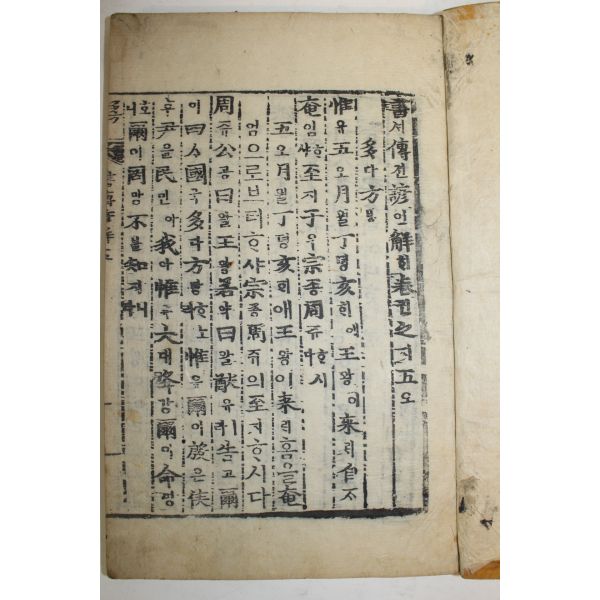 書셔傳젼諺언解해卷권之지五오
多다方방
惟유五오月월丁뎡亥해예王왕이來래自자
奄엄ᄒᆞ샤至지于우宗종周쥬ᄒᆞ시다
五오月월丁뎡亥해애王왕이來래홈을奄
엄으로브터ᄒᆞ샤宗종周쥬의至지ᄒᆞ시다
周쥬公공曰왈王왕若약曰왈猷유ㅣ라告고爾
이四ᄉᆞ國국多다方방아惟유爾이殷은侯
후尹윤을民민아我아惟유大대降강爾이命명
ᄒᆞ니爾이罔망不블知지니라